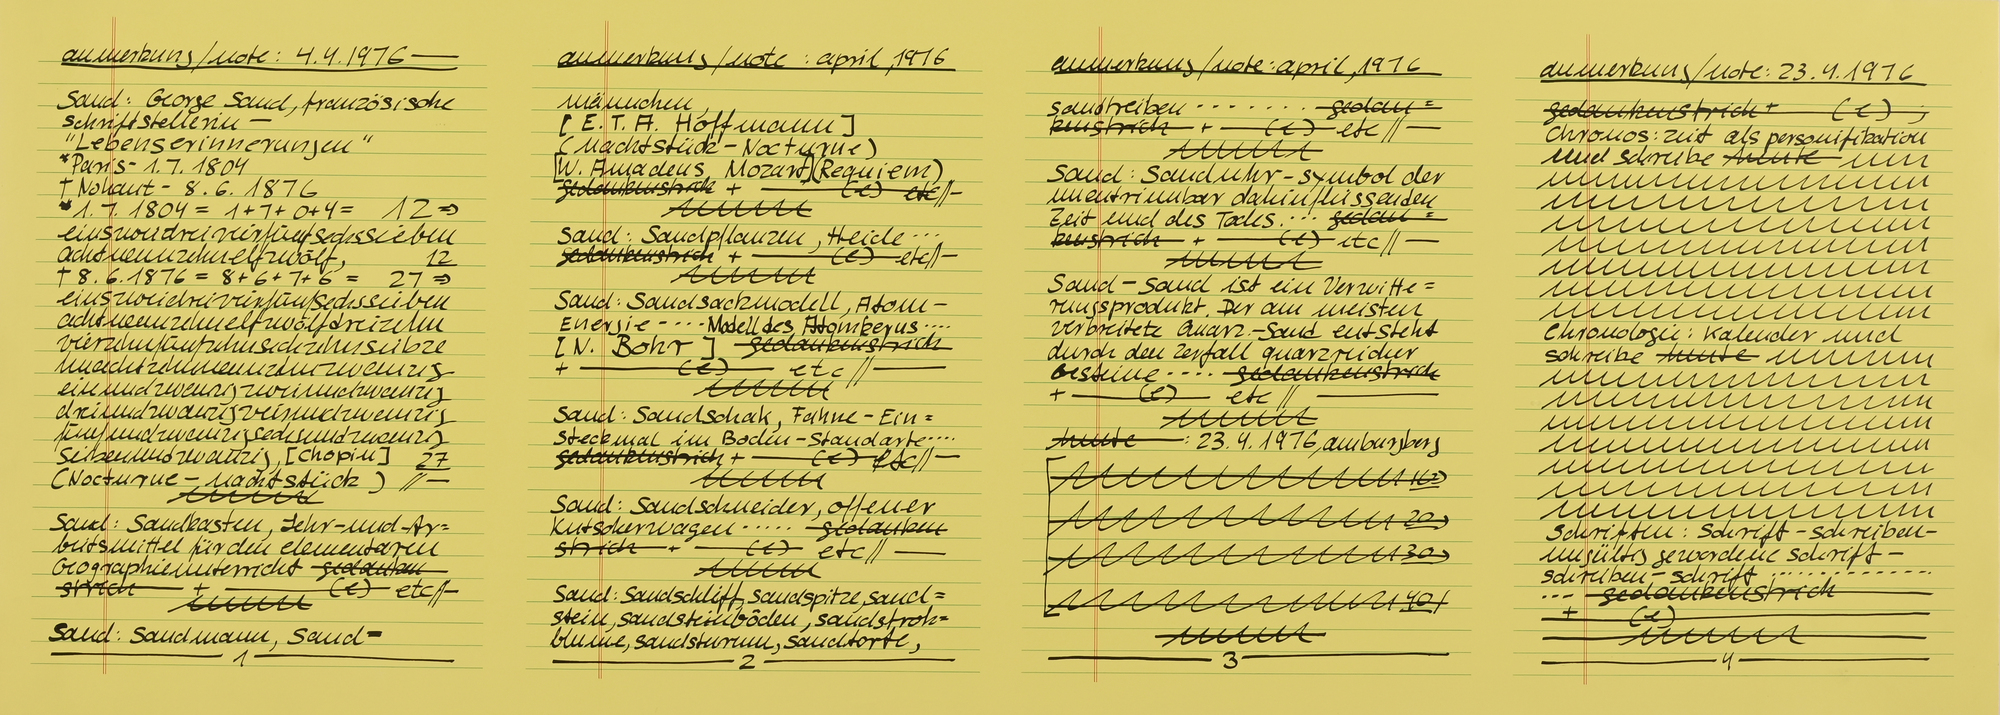 anmerkung/note: 4.4.1976
Sand: George Sand, französische
schriftstellerin –
"Lebenserinnerungen"
*Paris - 1.7.1804
† Nohant - 8.6.1876
* 1.7.1804 = 1+7+0+4 = 12 ⇒
einszweidreivierfünfsechssieben
achtneunzehnelfzwölf, 12
† 8.6.1876 = 8+6+7+6 = 27 ⇒
einszweidreivierfünfsechssieben
achtneunzehnelfzwölfdreizehn
vierzehnfünfzehnsechzehnsiebze
hnachtzehnneunzehnzwanzig
einundzwanzigzweiundzwanzig
dreiundzwanzigvierundzwanzig
fünfundzwanzigsechsundzwanzig
siebenundzwanzig, [Chopin] 27
(Nocturne – nachtstück) //—
Sand: Sandkasten, Lehr-und-Ar=
beitsmittel für den elementaren
Geographieunterricht gedanken
strich + — (e) — etc//—
Sand: Sandmann, Sand=
1
anmerkung/note : april, 1976
männchen,
[E.T.A. Hoffmann]
(nachtstück – Nocturne)
[W. Amadeus, Mozart](Requiem)
gedankenstrich + — (e) etc//—
Sand: Sandpflanzen, Heide ....
gedankenstrich + — (e) — etc//—
Sand: Sandsackmodell, Atom –
Energie ---- Modell des Atomkerns ....
[N. Bohr] gedankenstrich
+ — (e) — etc // —
Sand: Sandschak, Fahne – Ein=
steckmal im Boden – Standarte ....
gedankenstrich + — (e) — etc//—
Sand: Sandschneider, offener
Kutscherwagen ..... gedanken
strich — + — (e) — etc // —
Sand: Sandschliff, sandspitze, sand=
stein, sandsteinböden, sandstroh=
blume, sandsturm, sandtorte,
2
anmerkung/note: april, 1976
sandtreiben ........ gedan=
kenstrich — + — (e) — etc //—
Sand: Sanduhr – symbol der
unentrinnbar dahinfliessenden
Zeit und des Todes .... gedan=
kenstrich — + — (e) — etc // —
Sand – Sand ist ein Verwitte=
rungsprodukt. Der am meisten
verbreitete Quarz – Sand entsteht
durch den Zerfall quarzreicher
Gesteine .... gedankenstrich
+ — (e) — etc // —
heute — : 23.4.1976, amburgberg
10⊃
20⊃
30⊃
40/
3
anmerkung/note: 23.4.1976
gedankenstrich + (e) ;
Chronos: zeit als personifikation
und schreibe heute —
Chronologie: Kalender und
schreibe heute —
Schriften: Schrift – schreiben –
ungültig gewordene schrift –
schreiben – schrift ; ...........
... gedankenstrich
+ (e)
4